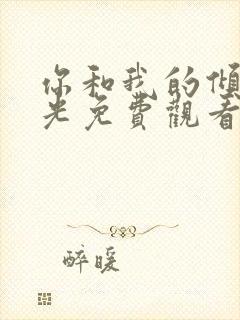 你和我的傾
光免費觀看
醉暖